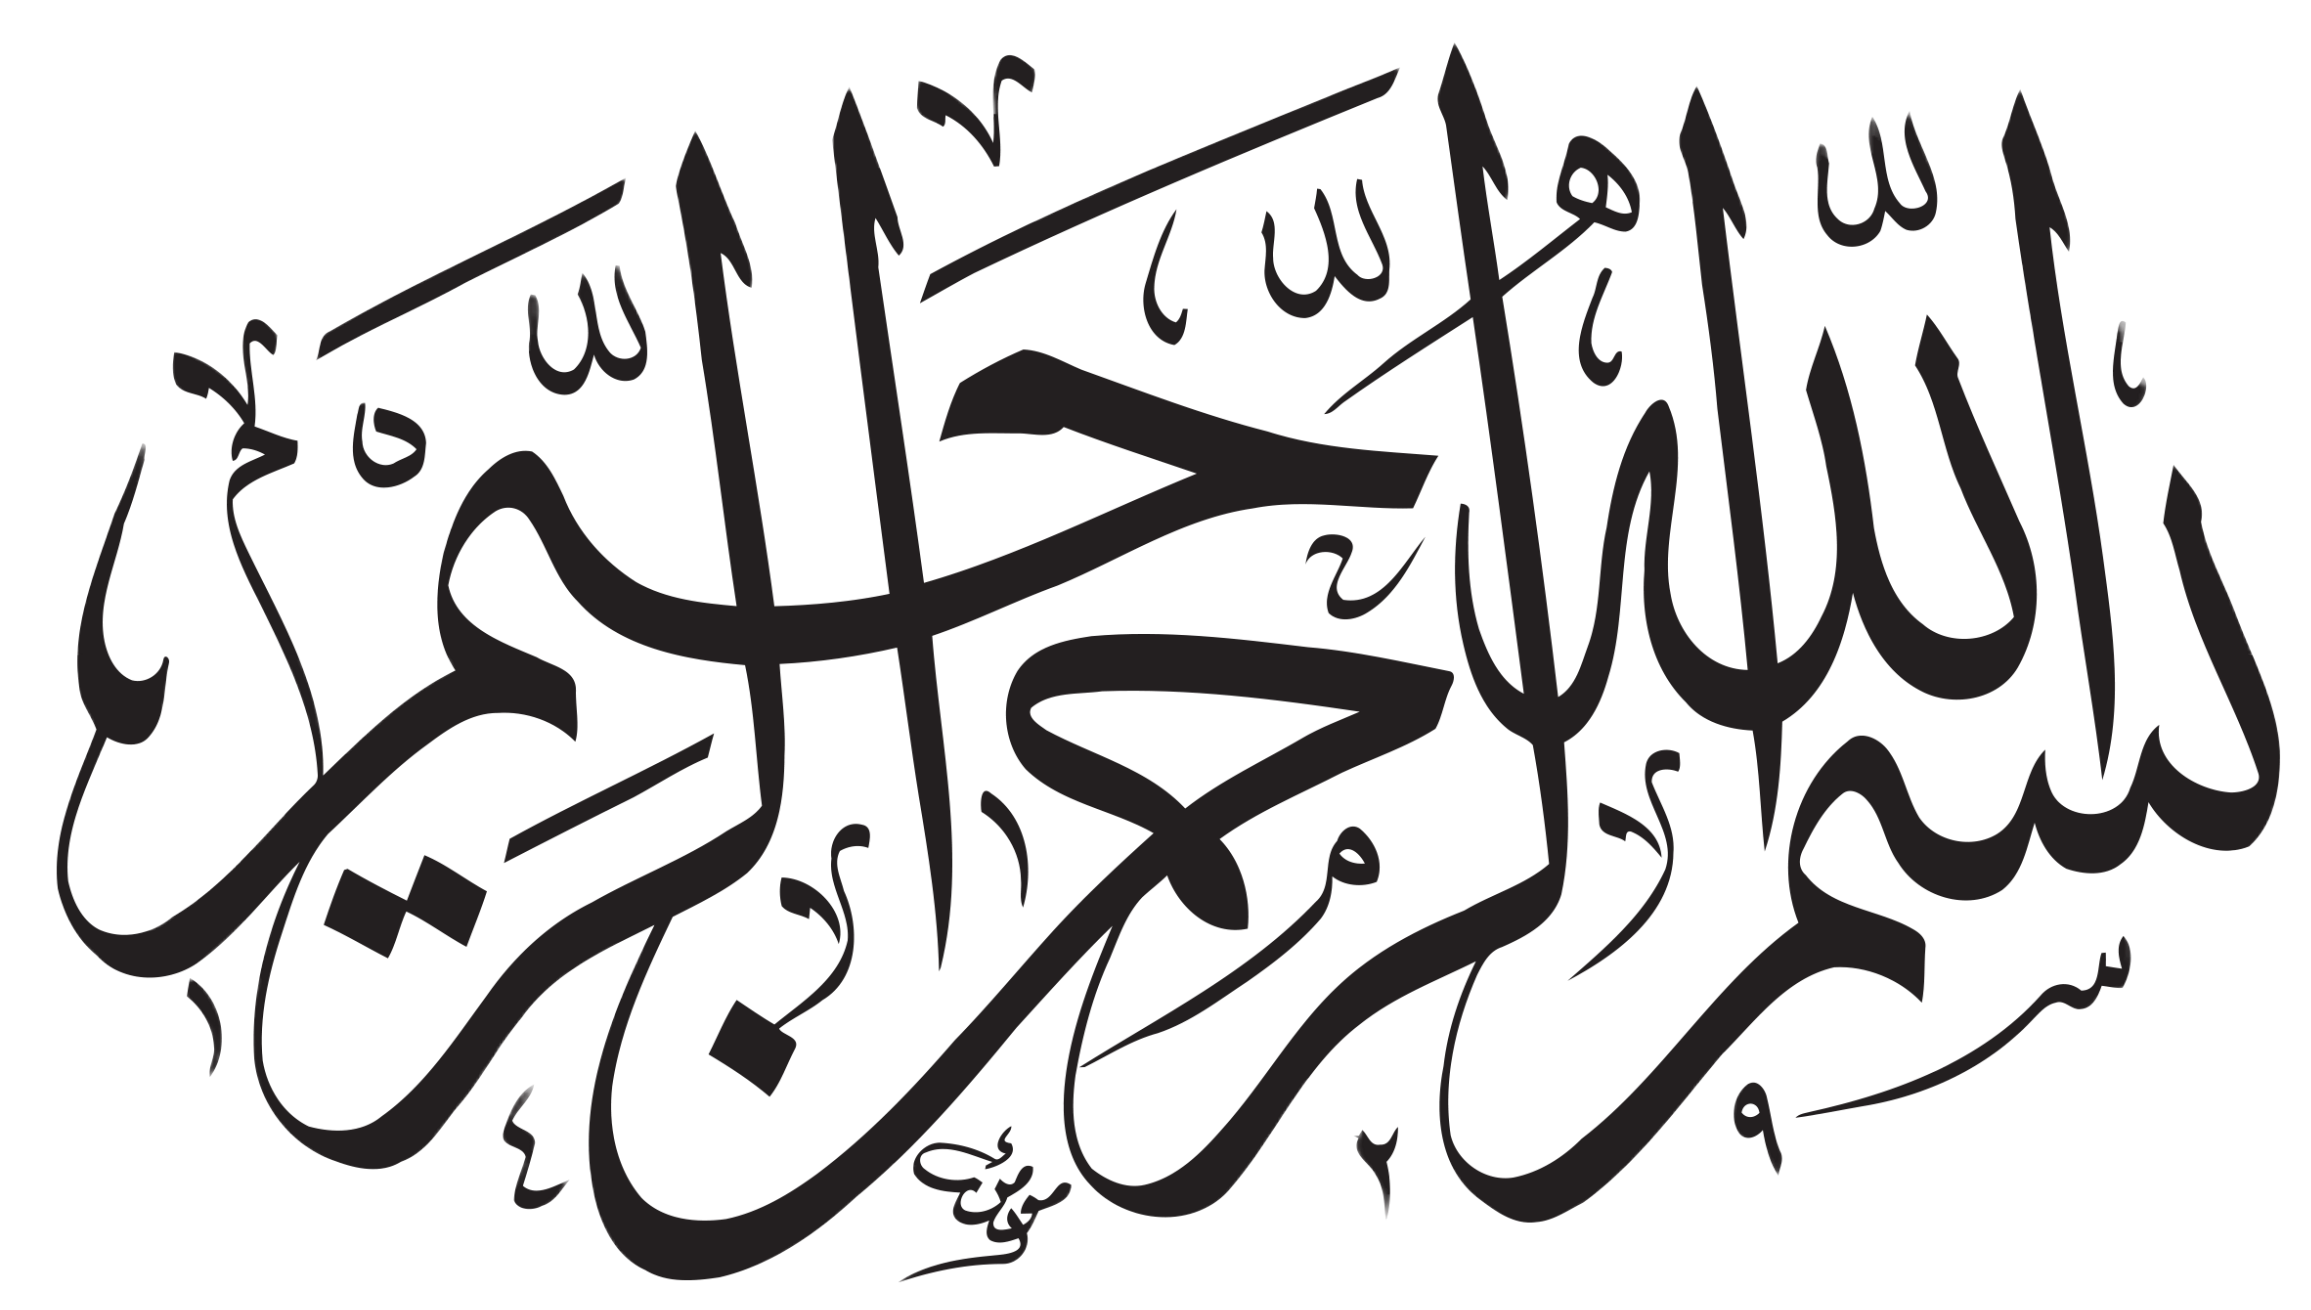 بسم الله الرحمن الرحيم
١٤٢٩